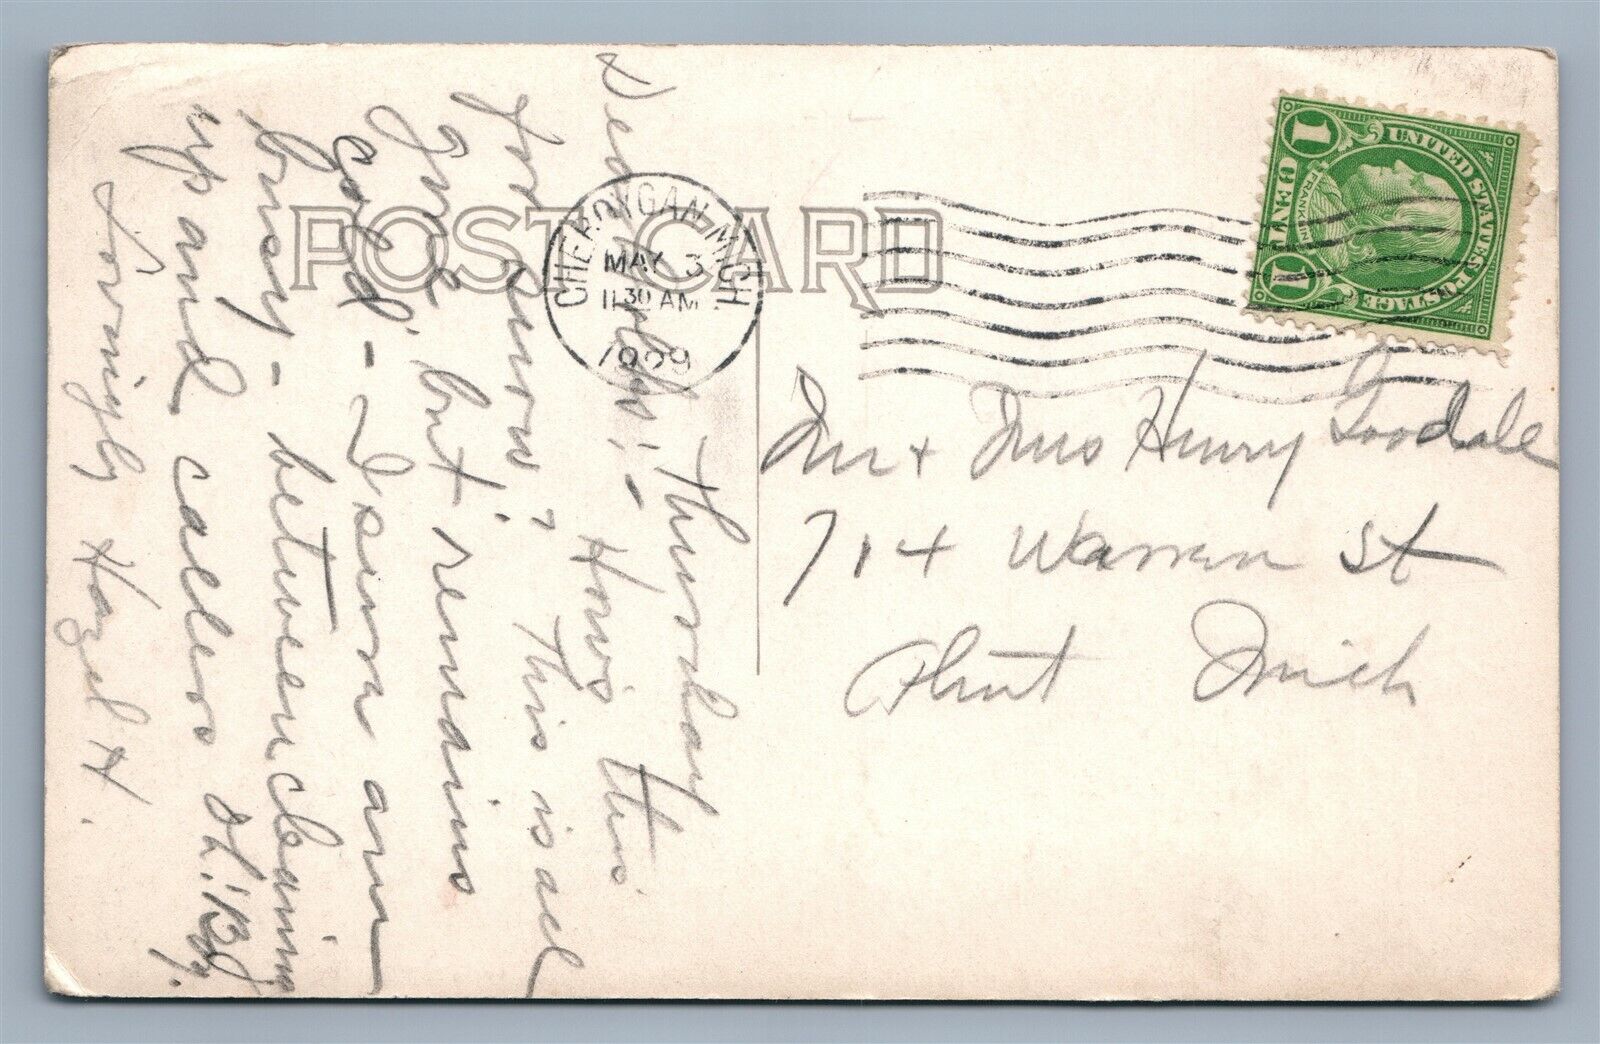 POST CARD
CHEBOYGAN, MICH
MAY 3
11 30 AM
UNITED STATES POSTAGE
FRANKLIN
1 ONE 1
Thursday
Dear Folks:- How's this
for snow? This is all
gone, but remains
cold - I sure am
busy - between cleaning
up and callers oh! Boy.
Lovingly Hazel H.
Mr + Mrs Henry Goodale
714 Warren St
Flint Mich